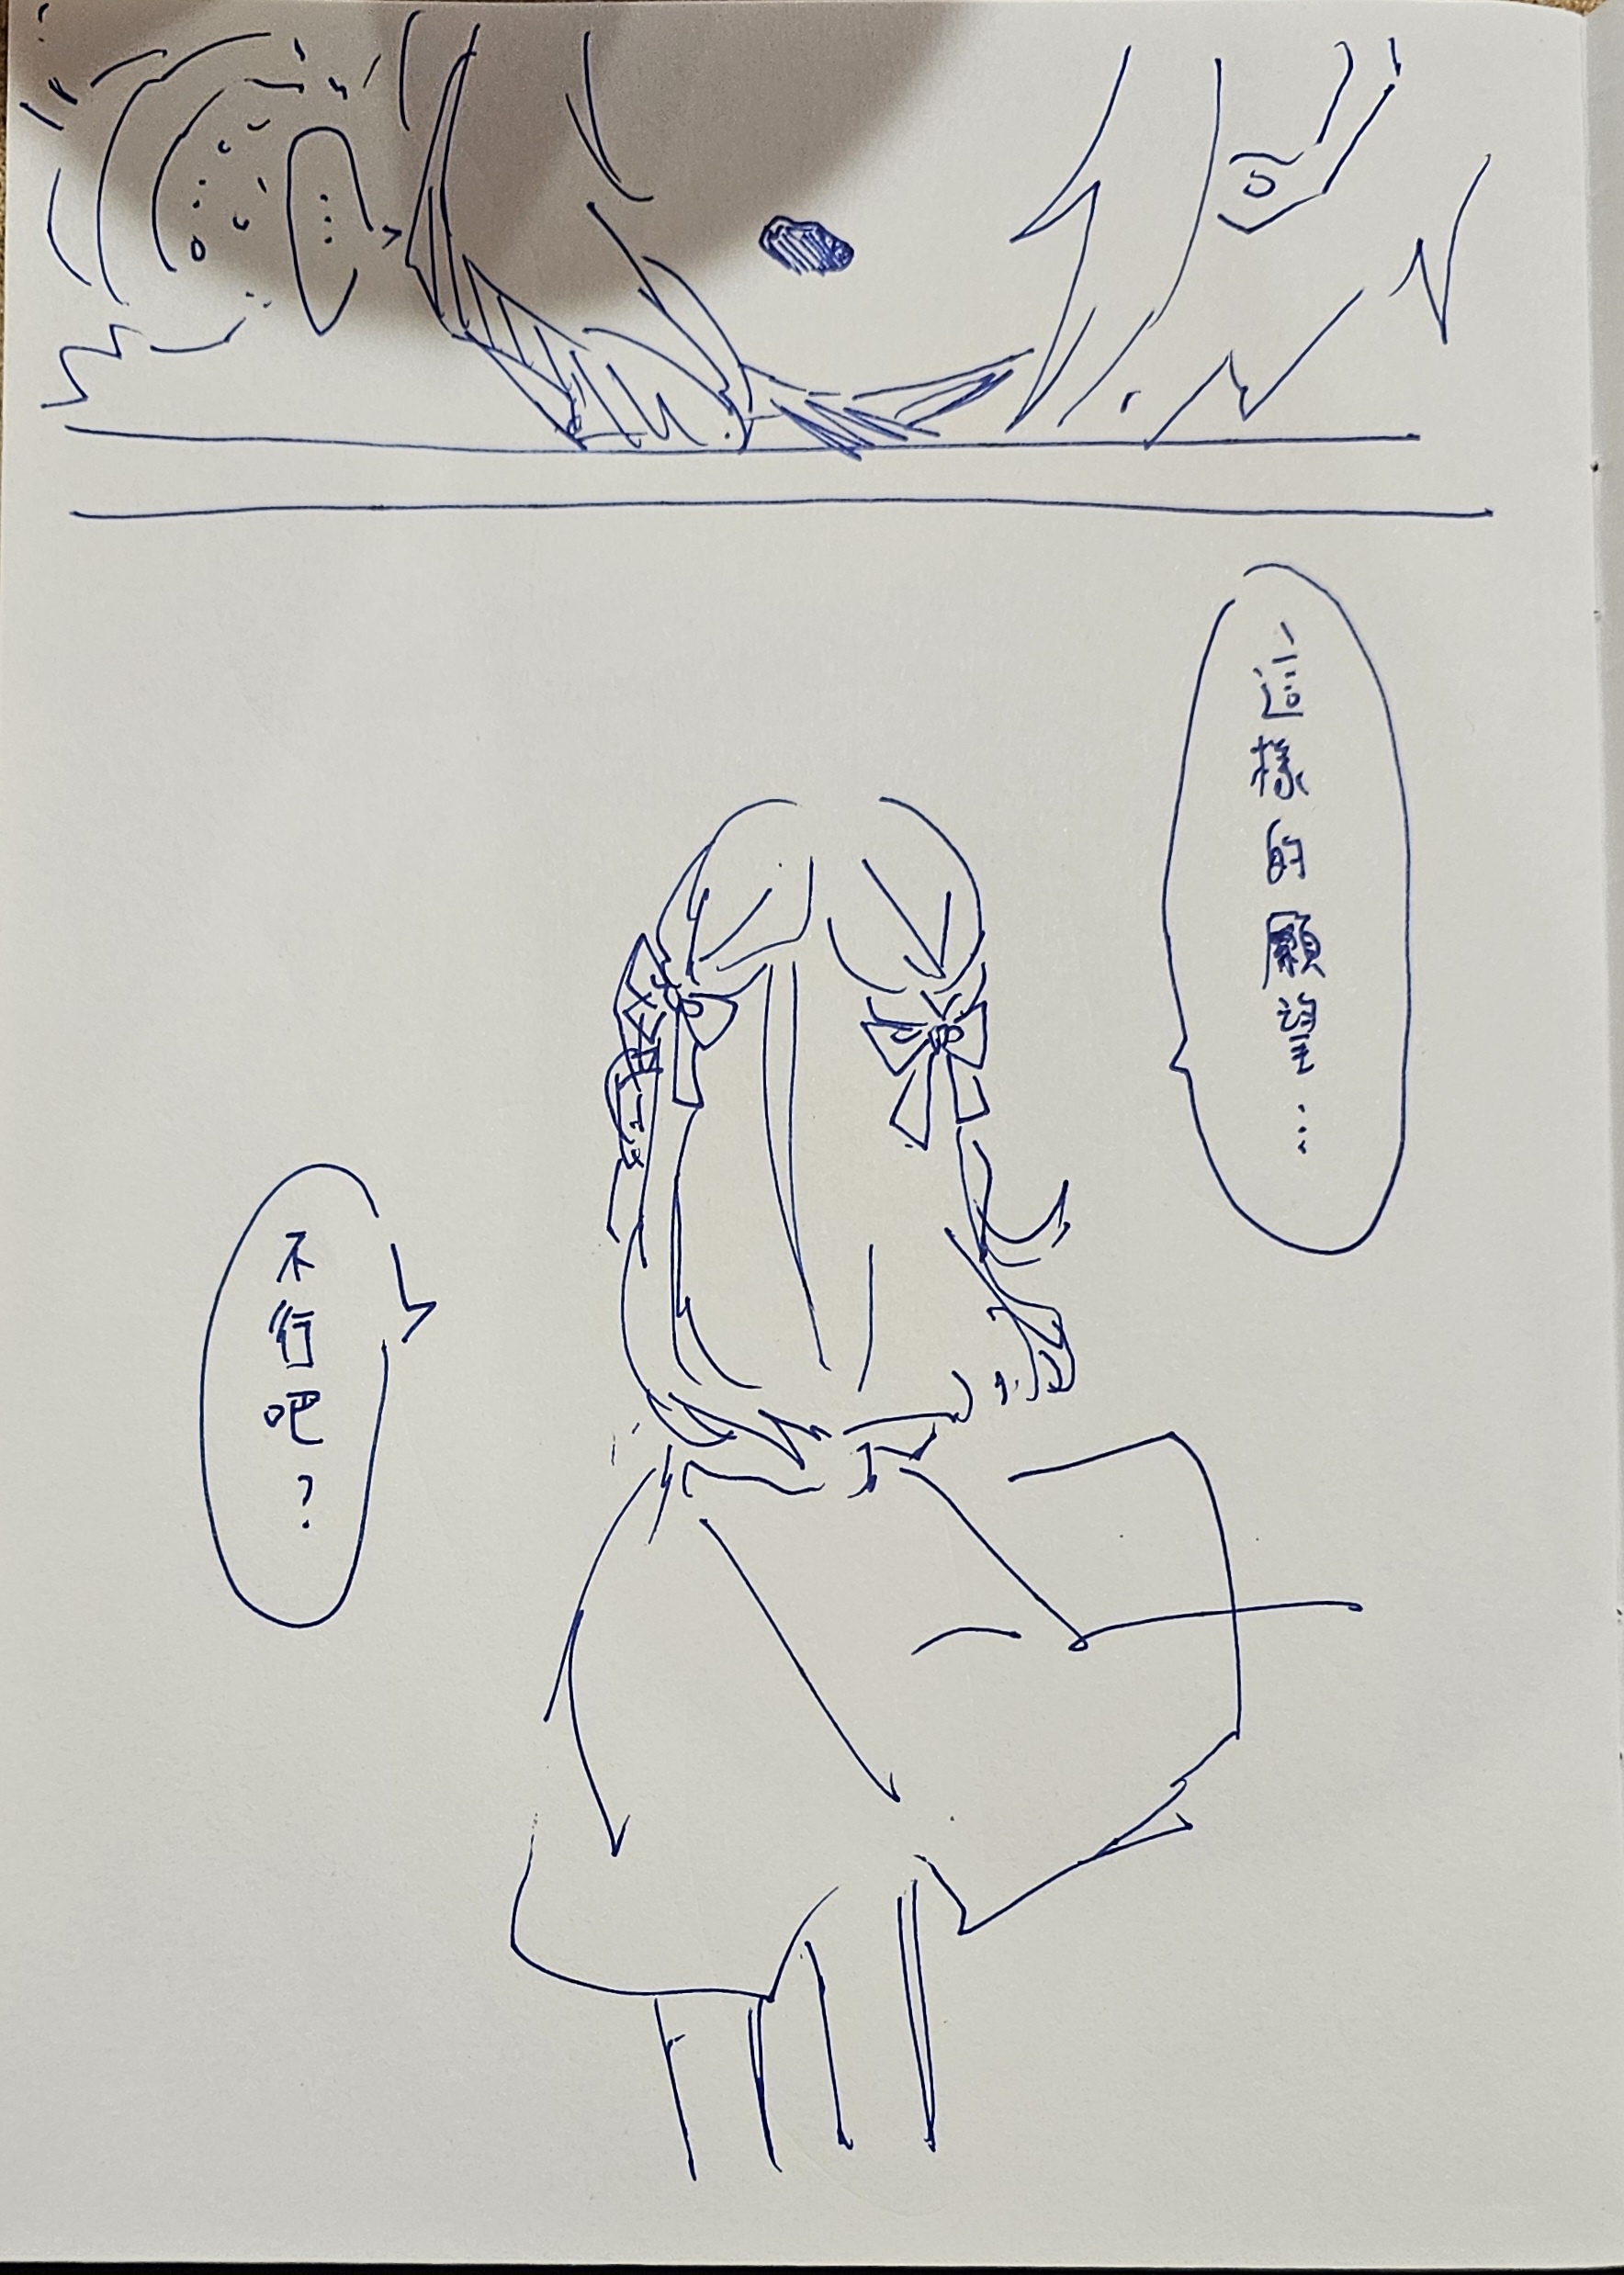 …
這樣的願望…
不行吧？